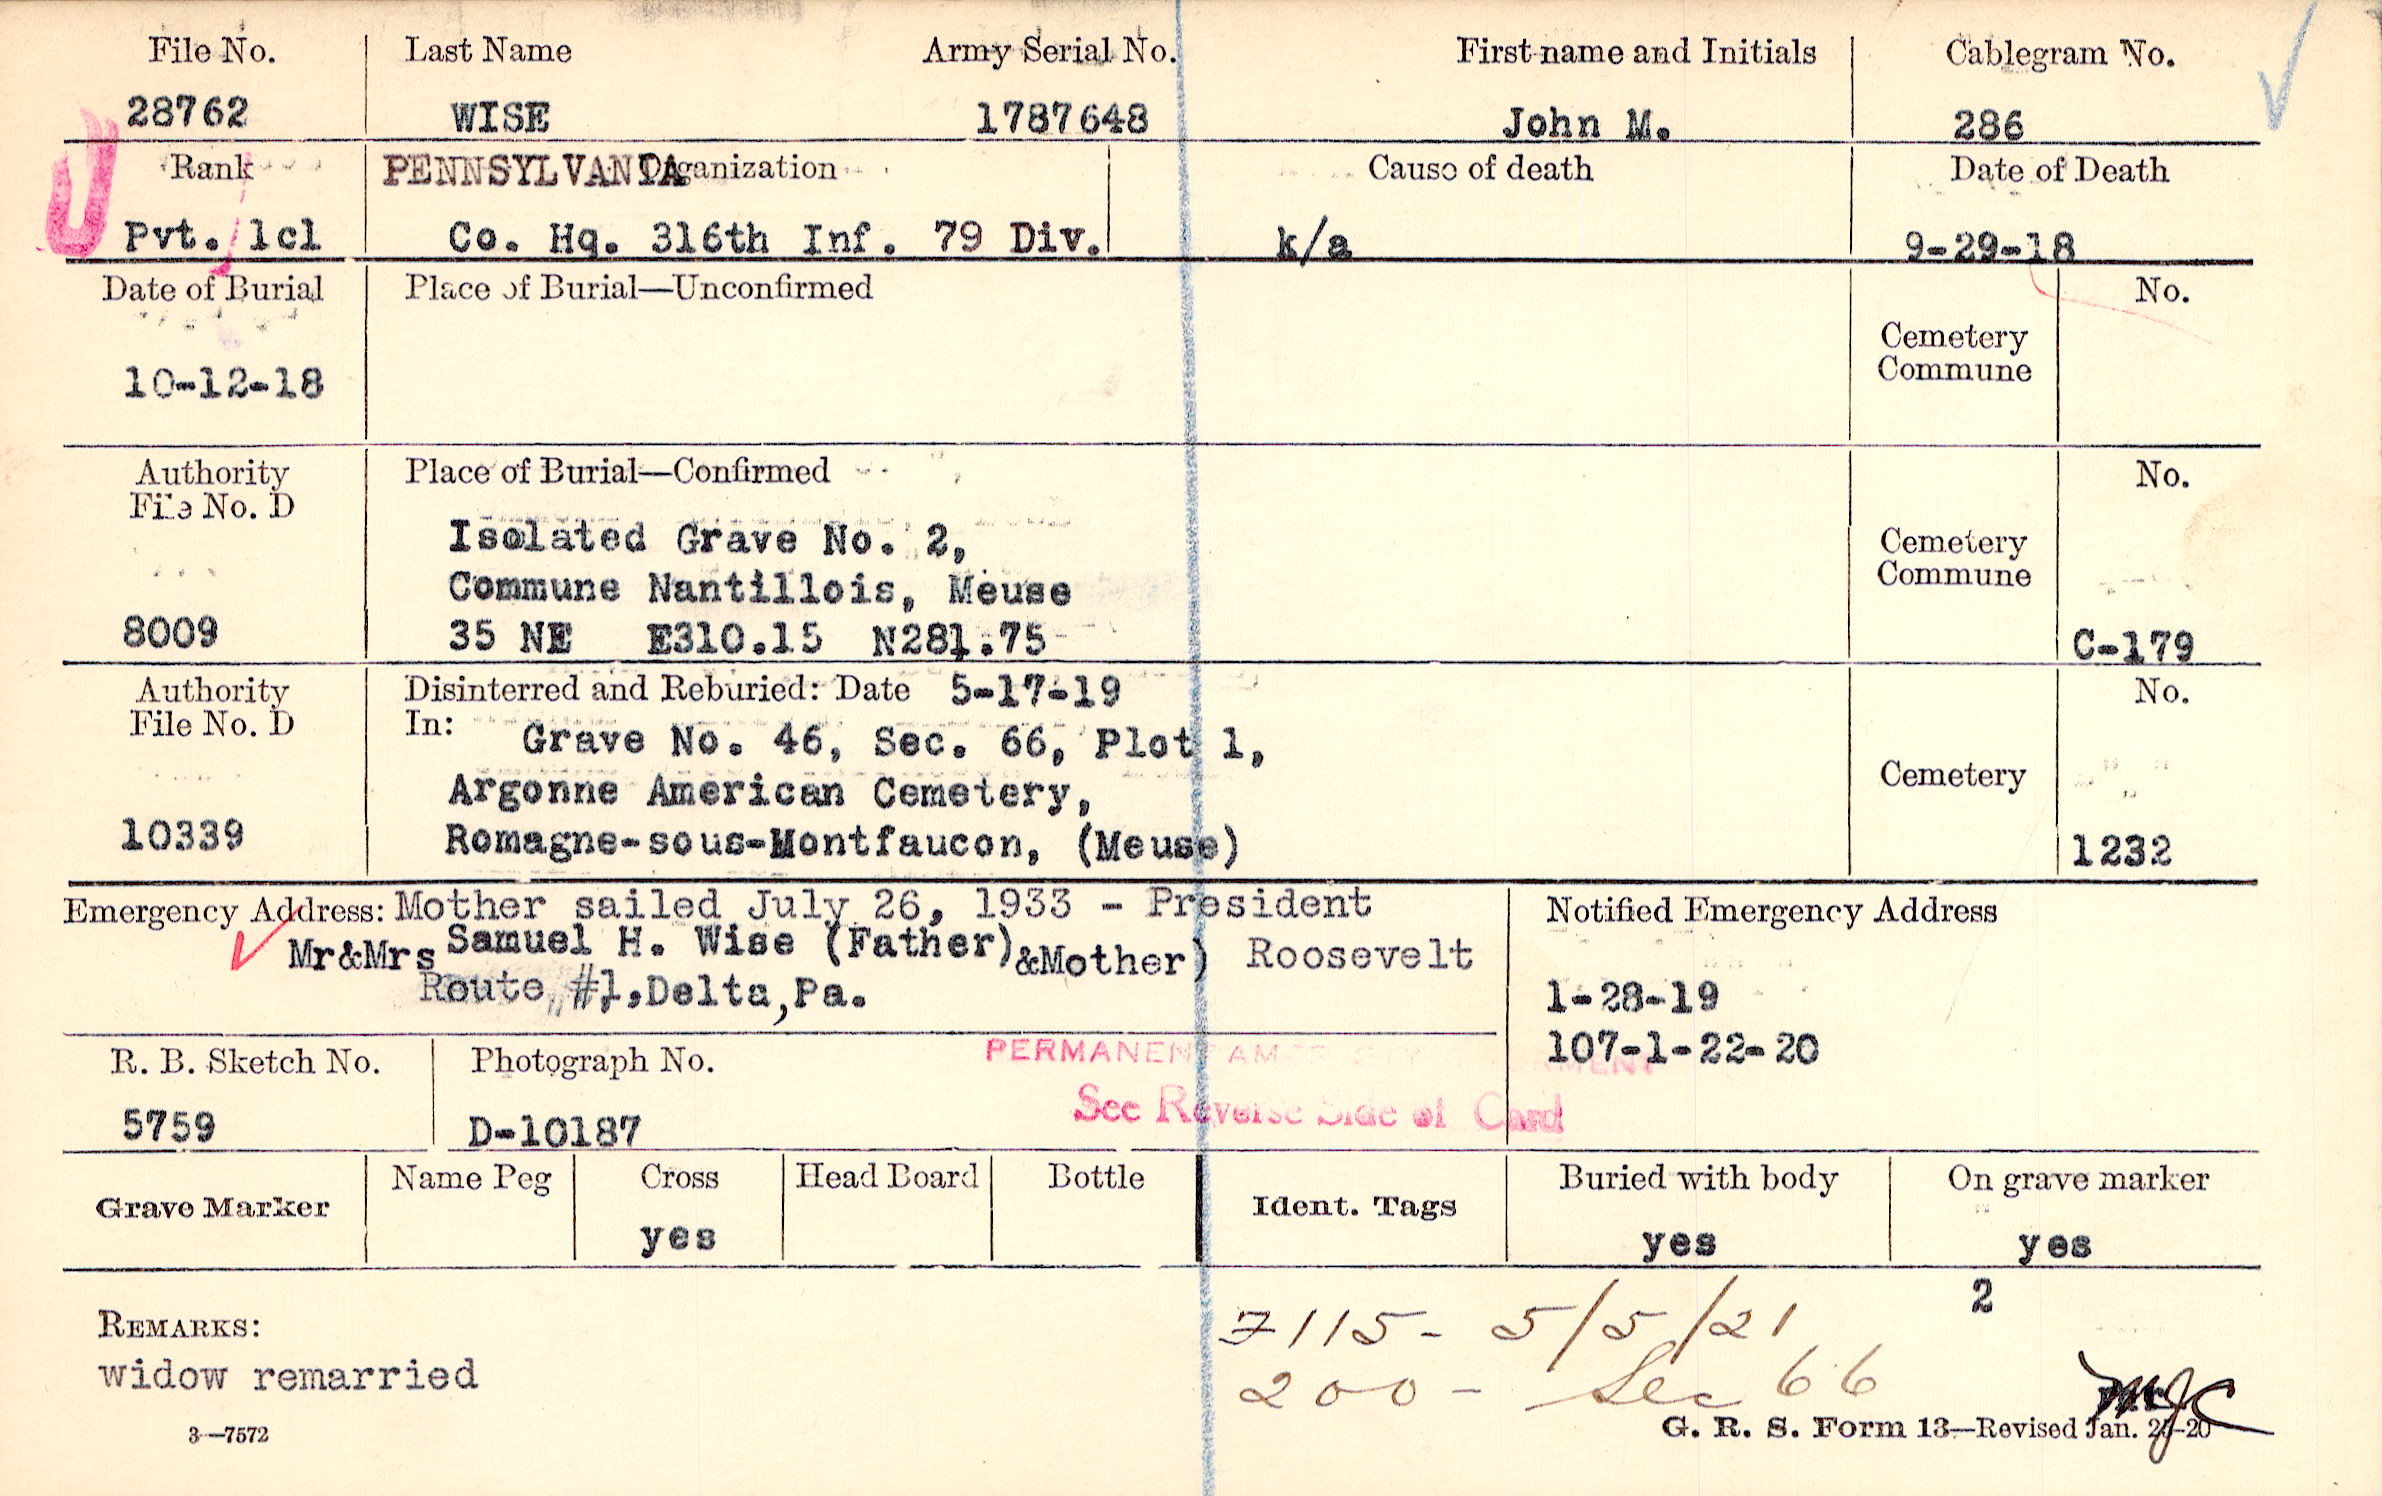 File No. Last Name Army Serial No. First name and Initials Cablegram No.
28762 WISE 1787648 John M. 286
Rank PENNSYLVANIA Organization Cause of death Date of Death
Pvt. 1cl Co. Hq. 316th Inf. 79 Div. k/a 9-29-18
Date of Burial Place of Burial—Unconfirmed No.
Cemetery
Commune
10-12-18
Authority Place of Burial—Confirmed No.
File No. D
Isolated Grave No. 2,
Cemetery
Commune Nantillois, Meuse Commune
8009 35 NE E310.15 N281.75 C-179
Authority Disinterred and Reburied: Date 5-17-19 No.
File No. D In: Grave No. 46, Sec. 66, Plot 1,
Argonne American Cemetery, Cemetery
10339 Romagne-sous-Montfaucon, (Meuse) 1232
Emergency Address: Mother sailed July 26, 1933 - President Notified Emergency Address
Mr&Mrs Samuel H. Wise (Father)&Mother) Roosevelt
Route #1, Delta, Pa. 1-28-19
107-1-22-20
R. B. Sketch No. Photograph No. PERMANENT
See Reverse Side of Card
5759 D-10187
Grave Marker Name Peg Cross Head Board Bottle Ident. Tags Buried with body On grave marker
yes yes yes
2
REMARKS: 7115- 5/5/21
widow remarried 200- Sec 66
MJC
3—7572 G. R. S. Form 13—Revised Jan.